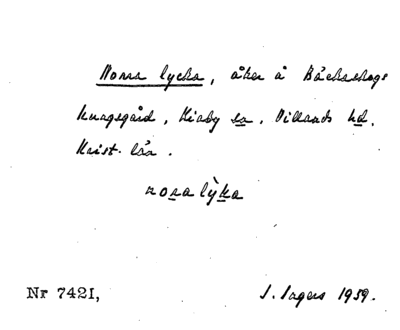 Norra lycka, åker å Bäckaskogs
kungsgård, Kiaby sn. Villands hd.
Krist. län.
nora lỳka
Nr 7421, J. Ingers 1959.